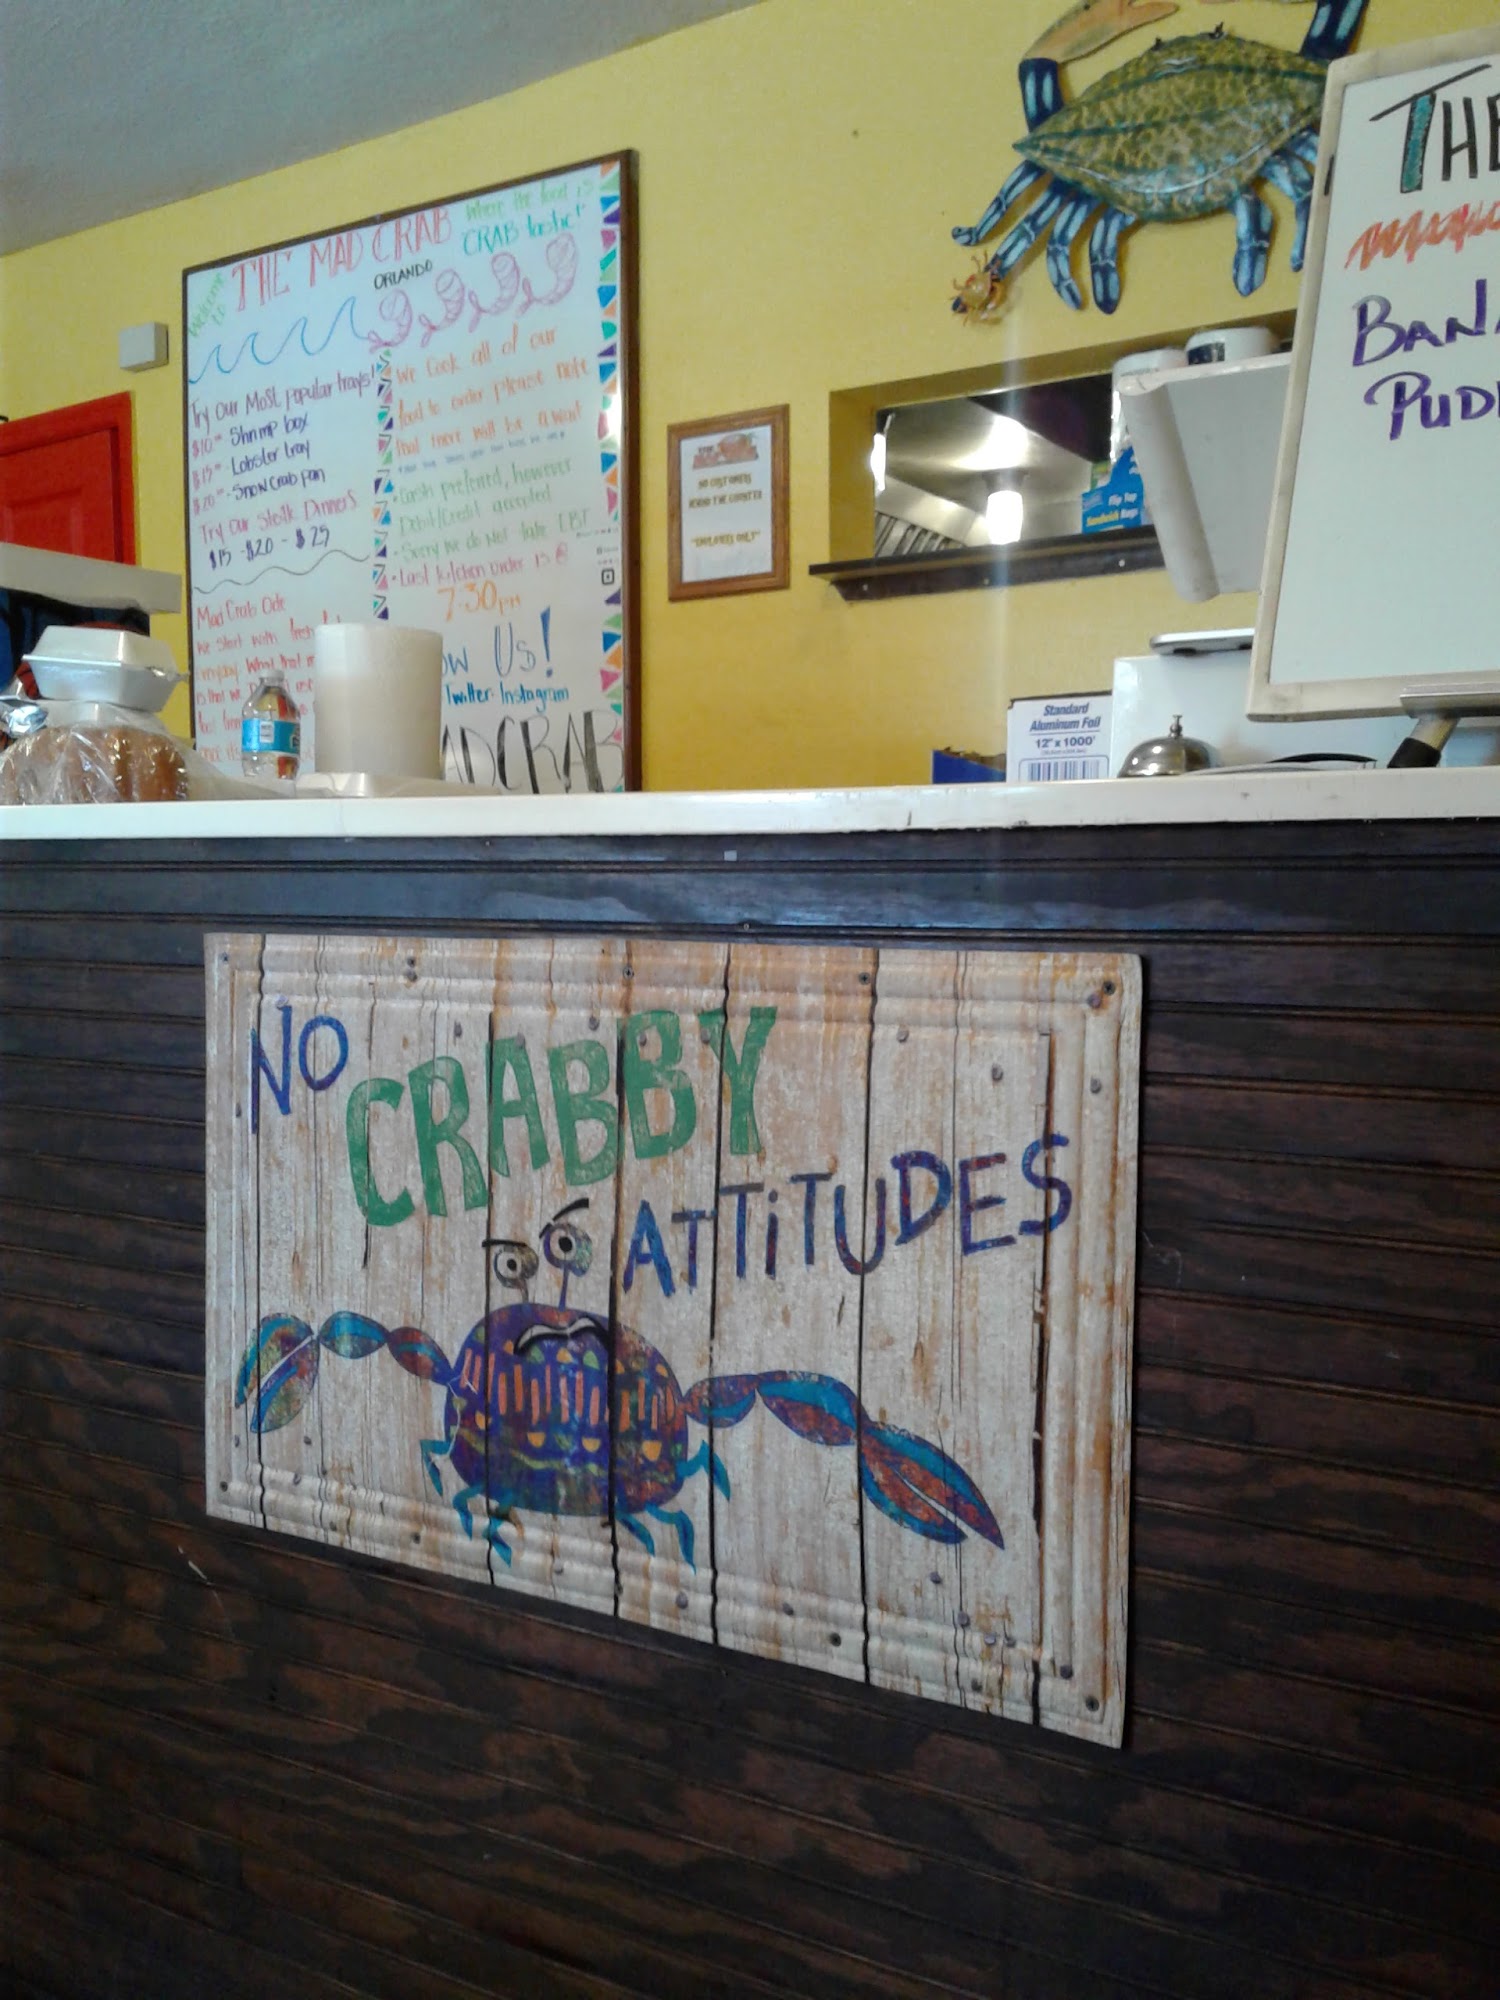 Welcome to THE MAD CRAB
ORLANDO
where the food is
CRABtastic!"
Try our Most popular trays!
$10.00 Shrimp box
$15.00 Lobster tray
$20.00 Snow Crab pan
Try our Steak Dinners
$15 - $20 - $25
Mad Crab Ode
We start with fresh
everyday. What that
is that we
We Cook all of our
food to order please note
that there will be a wait
• Cash preferred, however
Debit/Credit accepted
• Sorry we do NOT take EBT
• Last kitchen order is @
7:30PM
OW US!
Twitter Instagram
MADCRAB
NO CUSTOMERS
BEHIND THE COUNTER
"EMPLOYEES ONLY"
Flip Top
Sandwich Bags
THE
BANA
PUD
Standard
Aluminum Foil
12" x 1000'
NO
CRABBY
ATTiTUDES